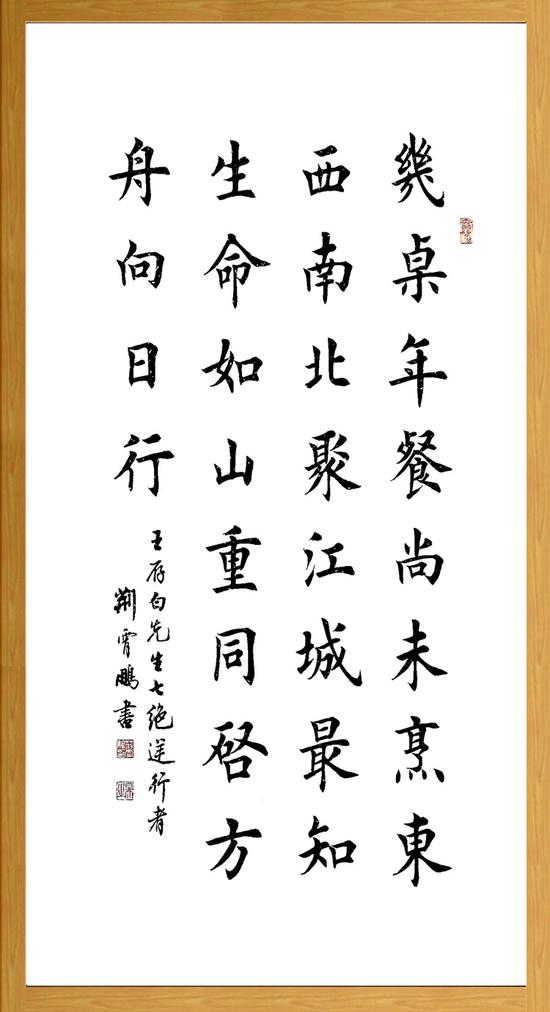 幾桌年餐尚未烹東
西南北聚江城最知
生命如山重同啓方
舟向日行
王存白先生七绝逆行者
荆霄鹏書